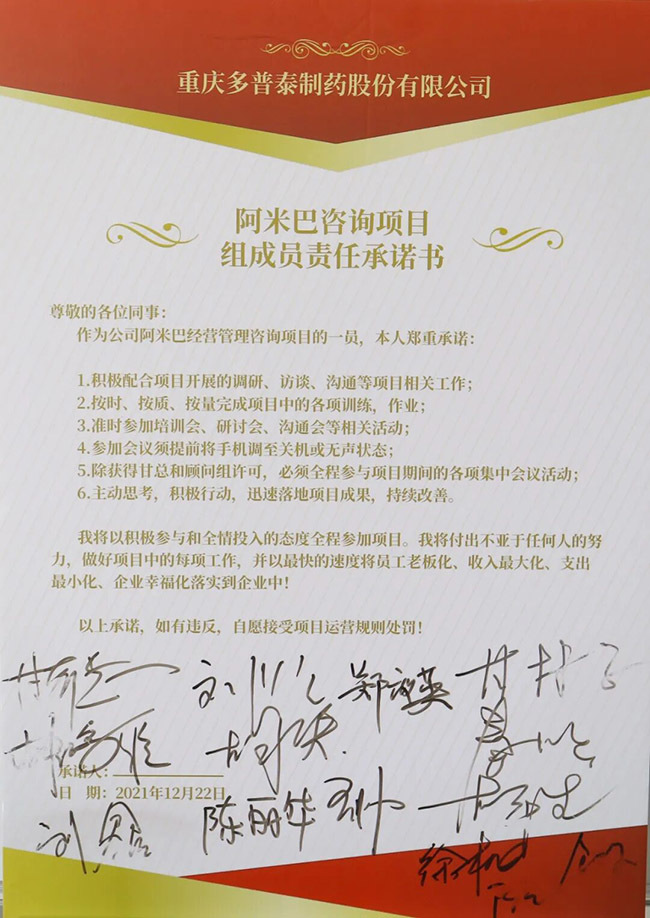 重庆多普泰制药股份有限公司
阿米巴咨询项目
组成员责任承诺书
尊敬的各位同事：
作为公司阿米巴经营管理咨询项目的一员，本人郑重承诺：
1.积极配合项目开展的调研、访谈、沟通等项目相关工作；
2.按时、按质、按量完成项目中的各项训练，作业；
3.准时参加培训会、研讨会、沟通会等相关活动；
4.参加会议须提前将手机调至关机或无声状态；
5.除获得甘总和顾问组许可，必须全程参与项目期间的各项集中会议活动；
6.主动思考，积极行动，迅速落地项目成果，持续改善。
我将以积极参与和全情投入的态度全程参加项目。我将付出不亚于任何人的努
力，做好项目中的每项工作，并以最快的速度将员工老板化、收入最大化、支出
最小化、企业幸福化落实到企业中！
以上承诺，如有违反，自愿接受项目运营规则处罚！
承诺人：
日 期：2021年12月22日
陈丽华